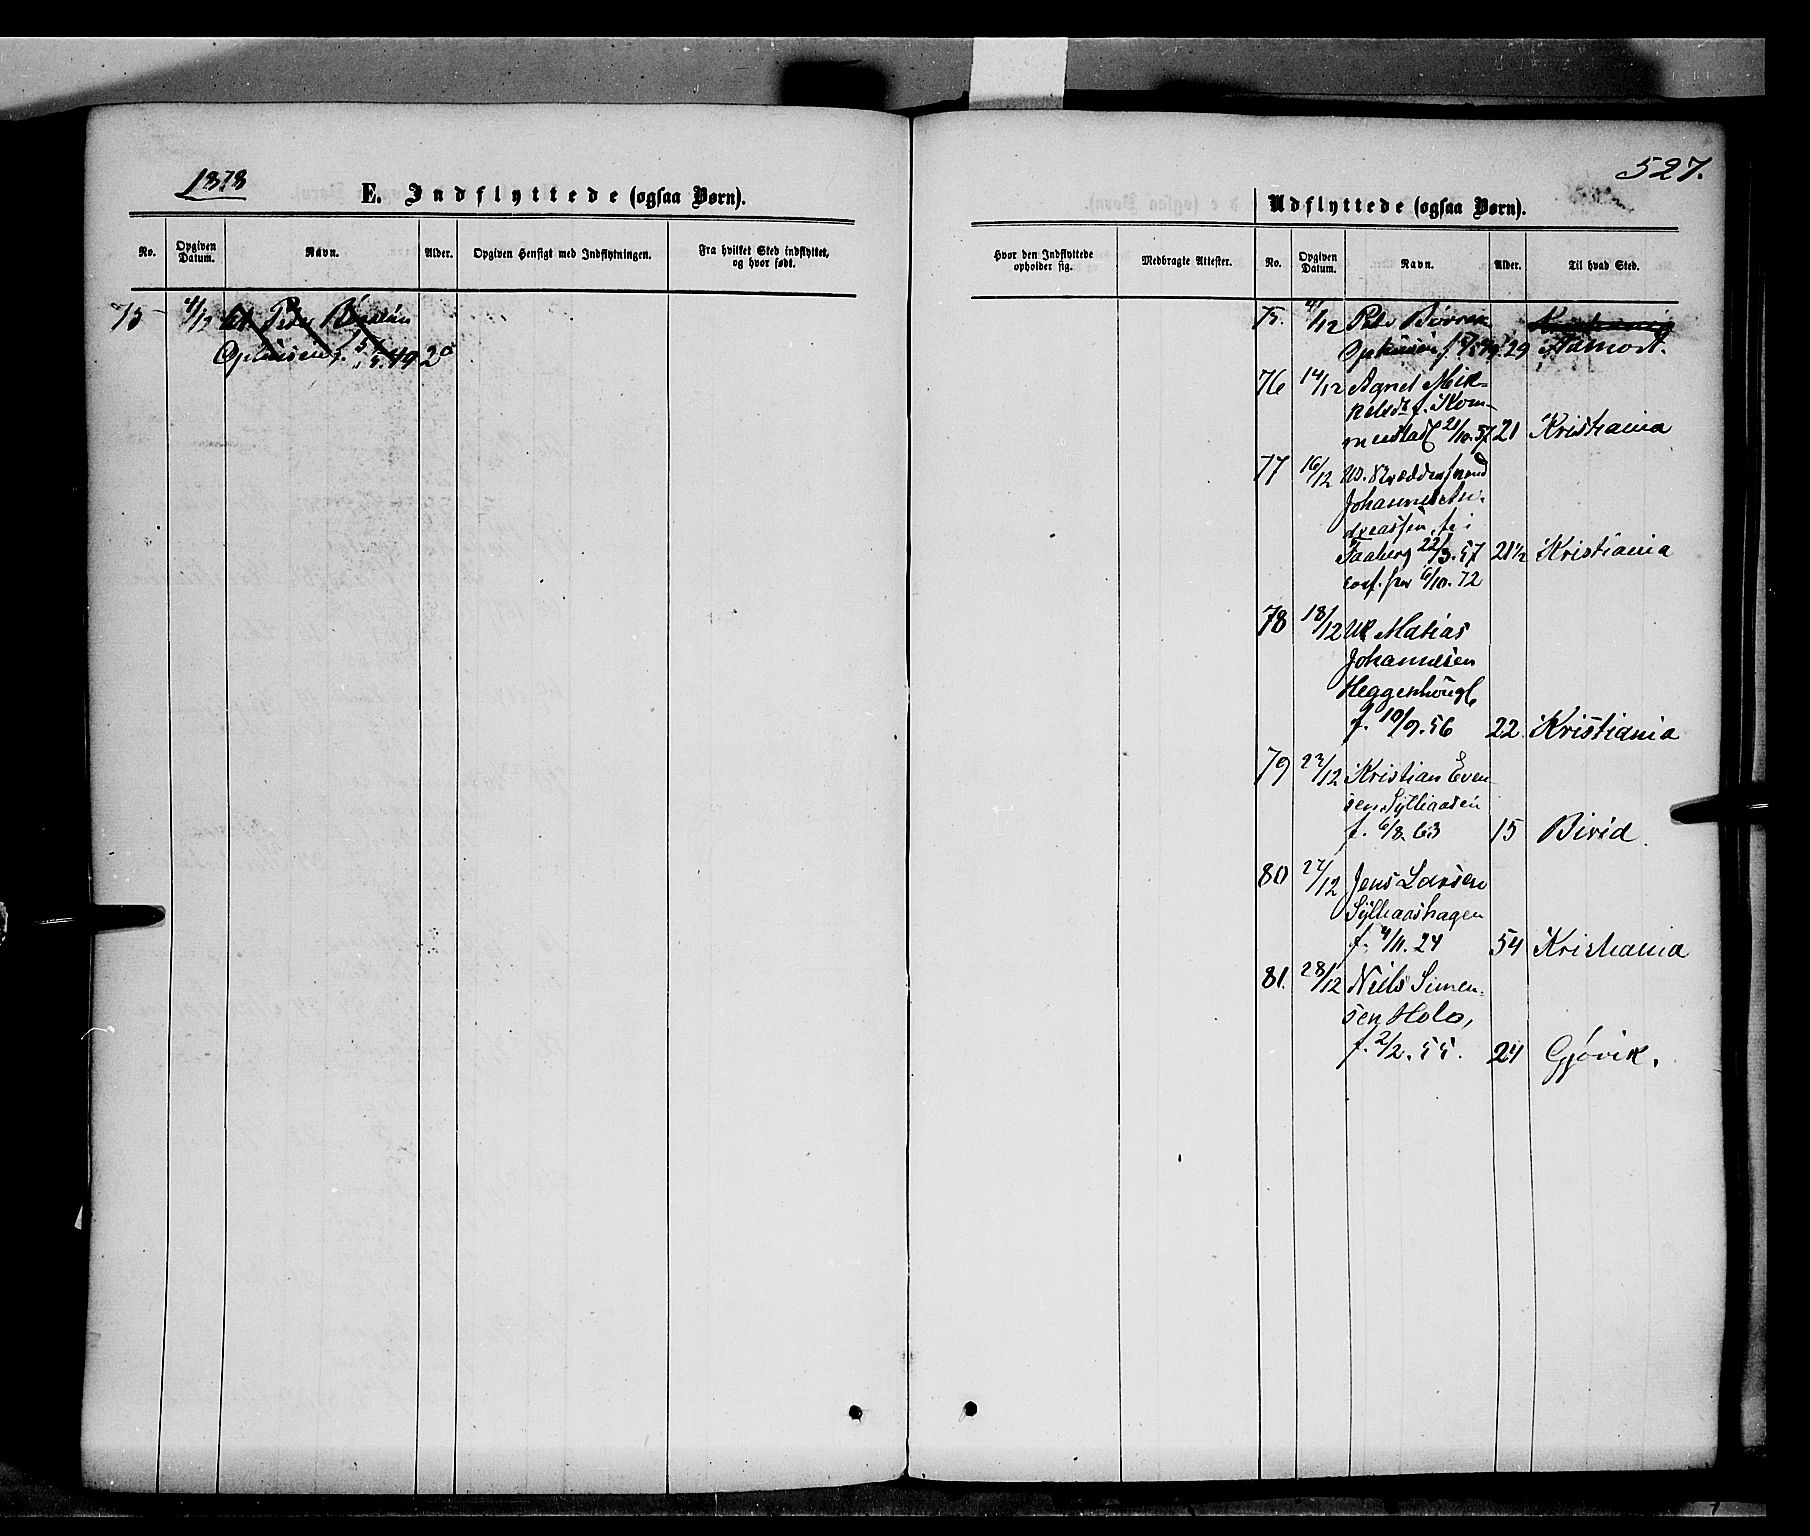 1878
E. Indflyttede (ogsaa Børn).
No. Opgiven Datum. Navn. Alder. Opgiven Hensigt med Indflytningen. Fra hvilket Sted indflyttet, og hvor født.
75 4/12 Peder
f. 5/5.49 2
527.
Udflyttede (ogsaa Børn).
Hvor den Indflyttede opholder sig. Medbragte Attester. No. Opgiven Datum. Navn. Alder. Til hvad Sted.
75. 4/12
29 Aamodt.
76 14/12 Agnet Mik-
kelsdt f.
21/10.57 21 Kristiania
77 16/12
Johannes An-
dreassen, fø i
Faaberg 22/3.57 21 1/2 Kristiania
conf. her 6/10.72
78 18/12 Uk Matias
Johannesen
Heggenhougl
f. 10/9.56 22 Kristiania
79 23/12 Kristian Even-
sen Sylliaasen
f. 6/8.63 15 Birid
80 27/12 Jens Larsen
Sylliaashagen
f. 4/11.24 54 Kristiania
81. 28/12 Niels Simen-
sen Holo,
f. 2/2.55. 24 Gjøvik.